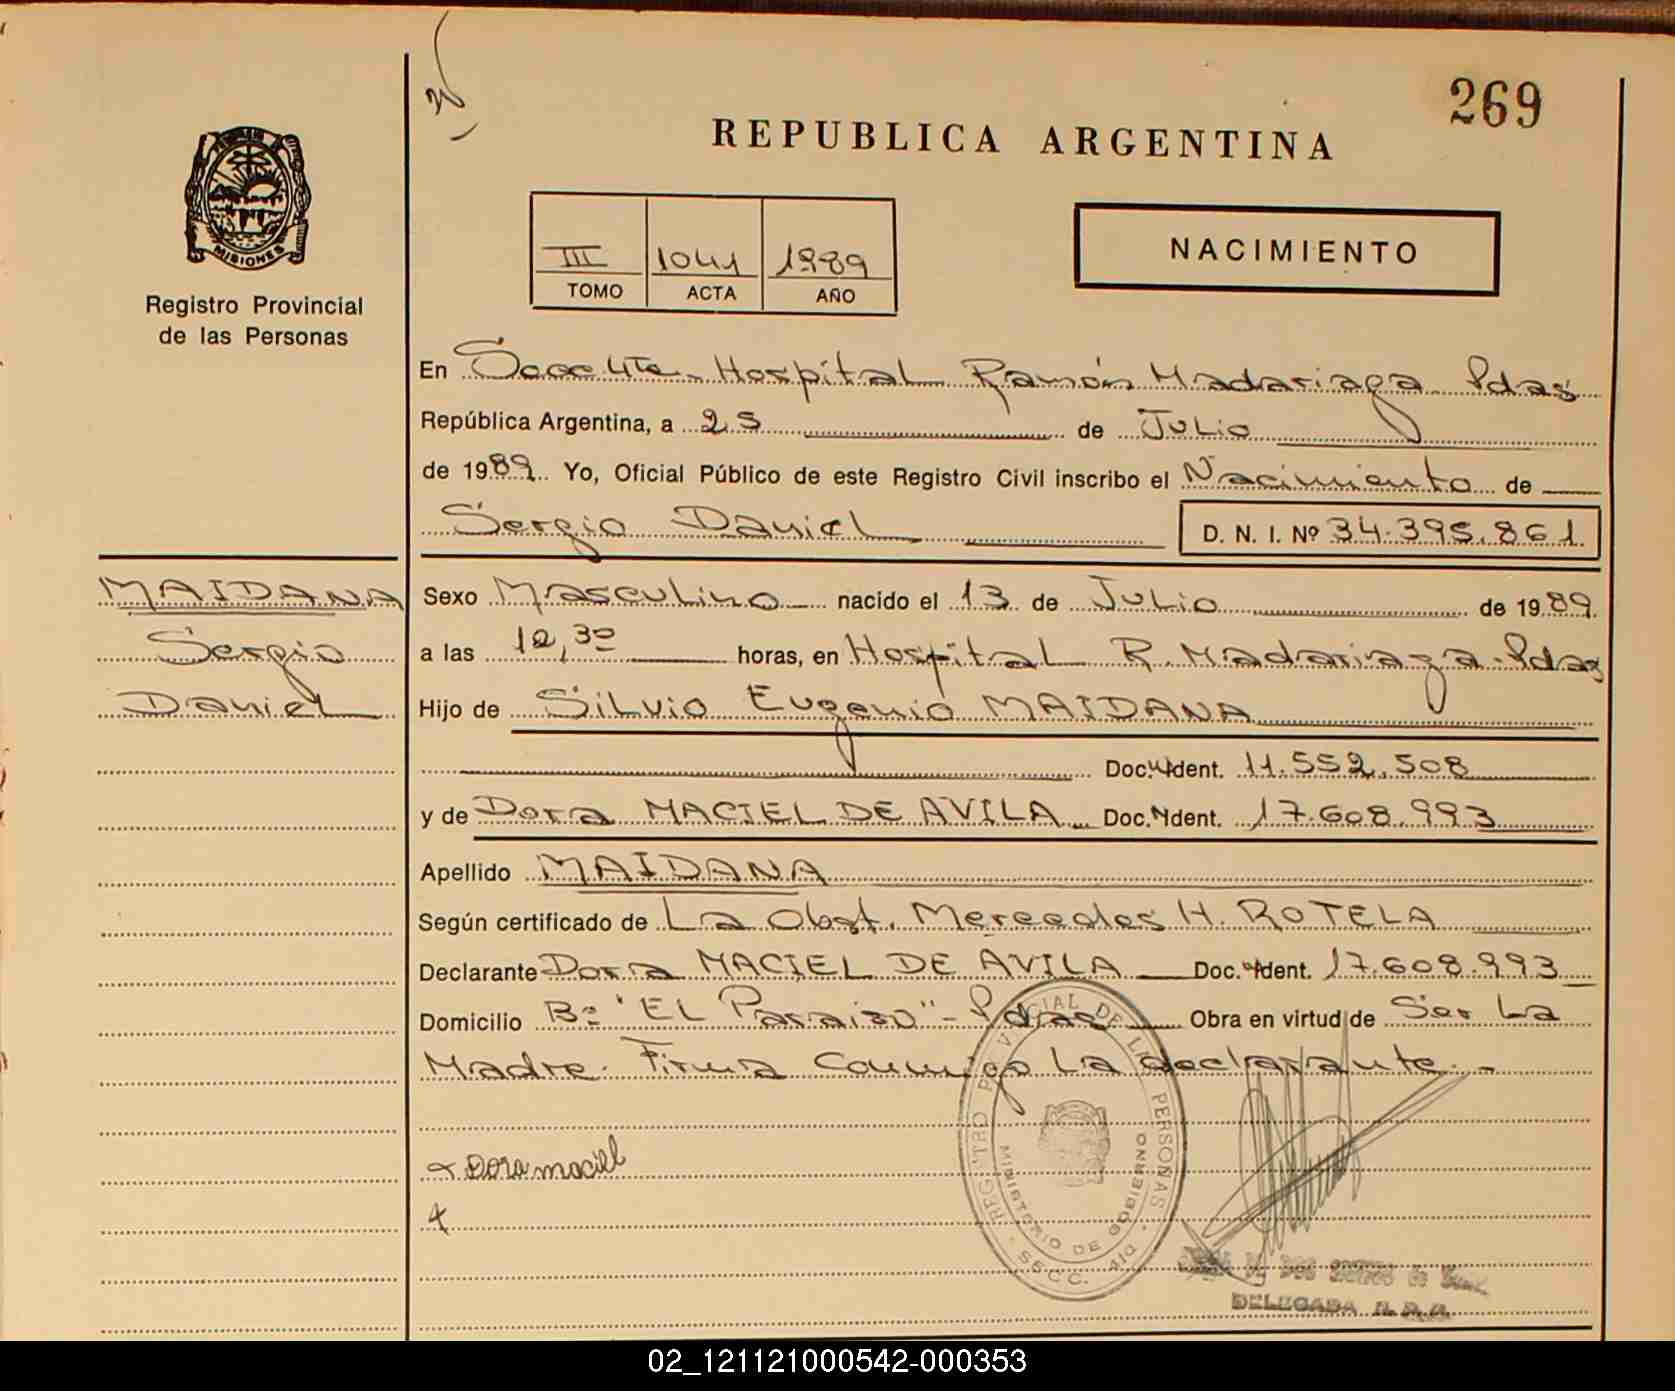 269
REPUBLICA ARGENTINA
MISIONES
Registro Provincial
de las Personas
III 1041 1989
TOMO ACTA AÑO
NACIMIENTO
En Secc 4ta - Hospital Ramón Madariaga Pdas
República Argentina, a 25 de Julio
de 1989 Yo, Oficial Público de este Registro Civil inscribo el Nacimiento de
Sergio Daniel D. N. I. Nº 34.395.861
MAIDANA
Sergio
Daniel
Sexo Masculino nacido el 13 de Julio de 1989
a las 12,30 horas, en Hospital R. Madariaga - Pdas
Hijo de Silvio Eugenio MAIDANA
Doc. Ident. 11.552.508
y de Dora MACIEL DE AVILA Doc. Ident. 17.608.993
Apellido MAIDANA
Según certificado de La Obst. Mercedes H. ROTELA
Declarante Dora MACIEL DE AVILA Doc. Ident. 17.608.993
Domicilio Bº "EL Paraiso" - Pdas Obra en virtud de Ser La
Madre. Firma Conmigo La declarante. -
x Dora maciel
x
REGISTRO PROVINCIAL DE LAS PERSONAS
MINISTERIO DE GOBIERNO
SECC. 4ta
DELEGADA
02_121121000542-000353